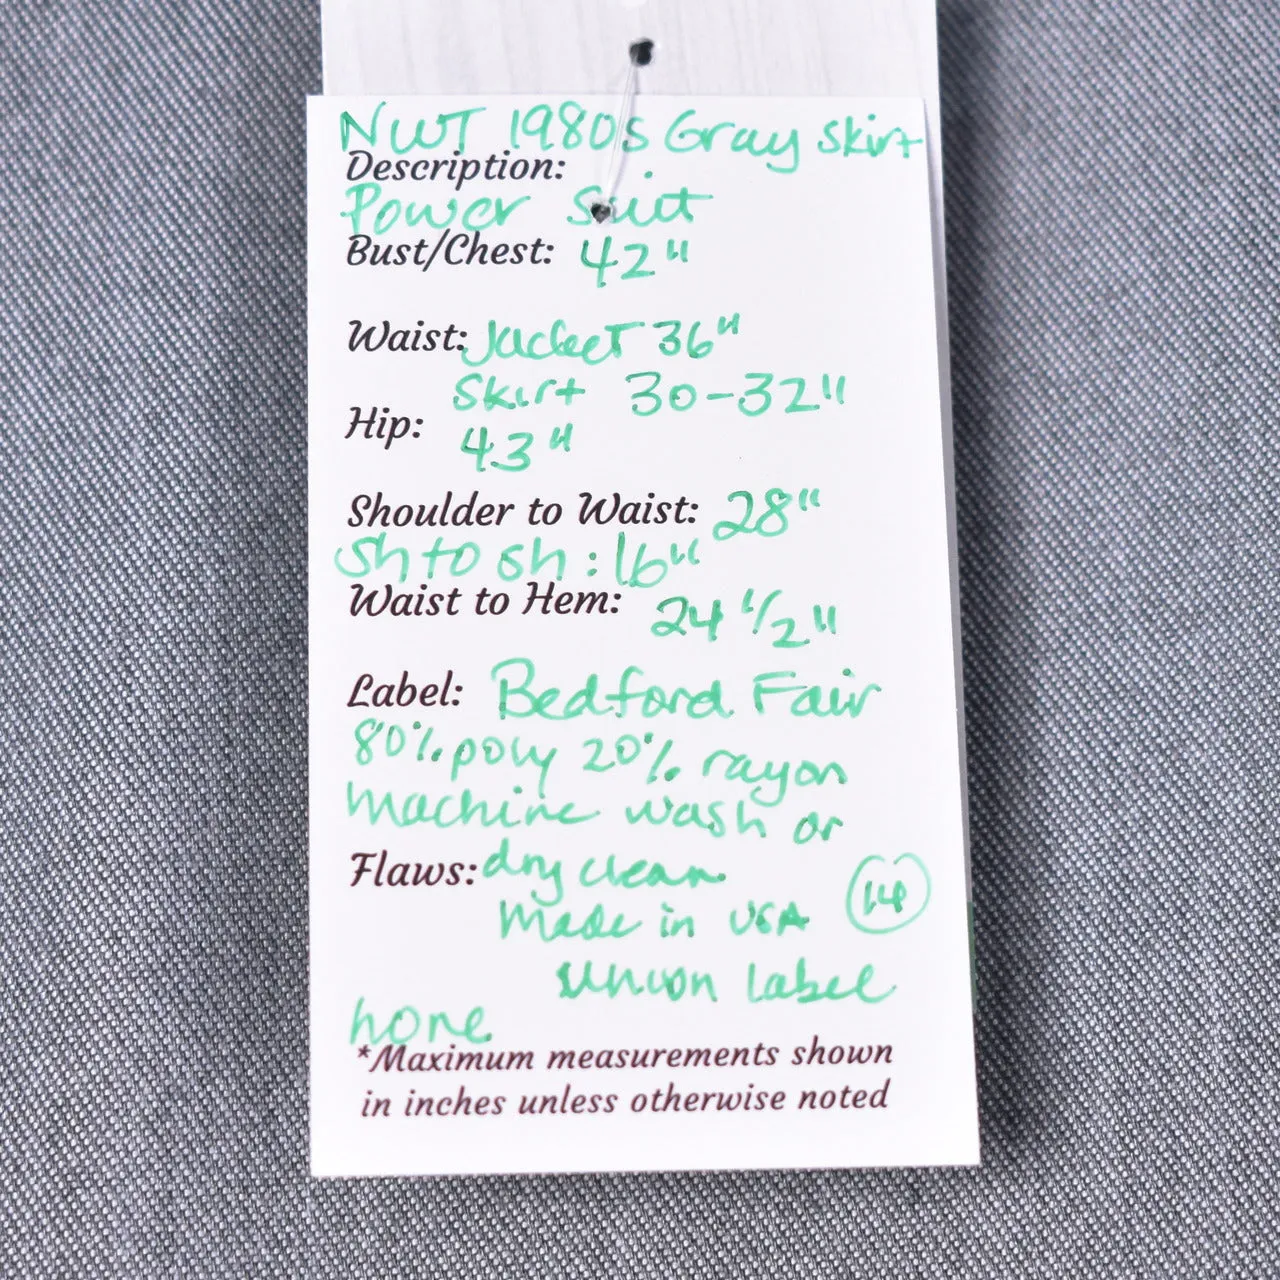 NWT 1980s Gray Skirt
Description:
Power Suit
Bust/Chest: 42"
Waist: Jacket 36"
Skirt 30-32"
Hip: 43"
Shoulder to Waist: 28"
Sh to sh: 16"
Waist to Hem: 24 1/2"
Label: Bedford Fair
80% poly 20% rayon
Machine wash or
Flaws: dry clean
Made in USA 14
Union label
none
*Maximum measurements shown
in inches unless otherwise noted